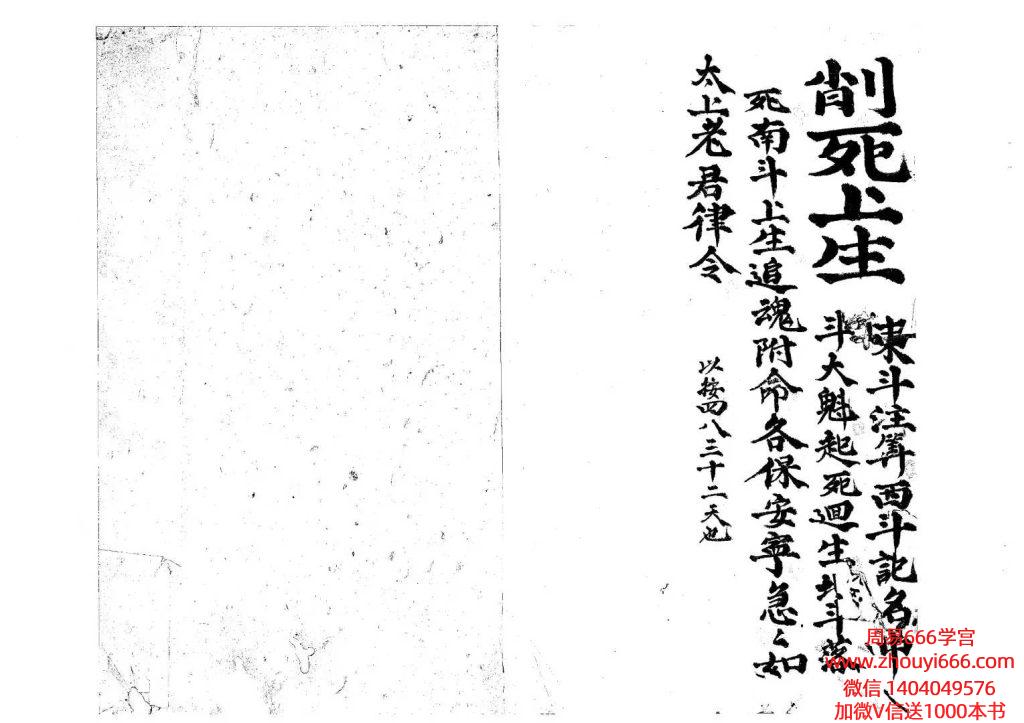 削死上生
東斗注筭西斗記名
斗大魁起死迴生北斗落
死南斗上生追魂附命各保安寧急々如
太上老君律令
以按四八三十二天也
周易666学宫
www.zhouyi666.com
微信 1404049576
加微V信送1000本书